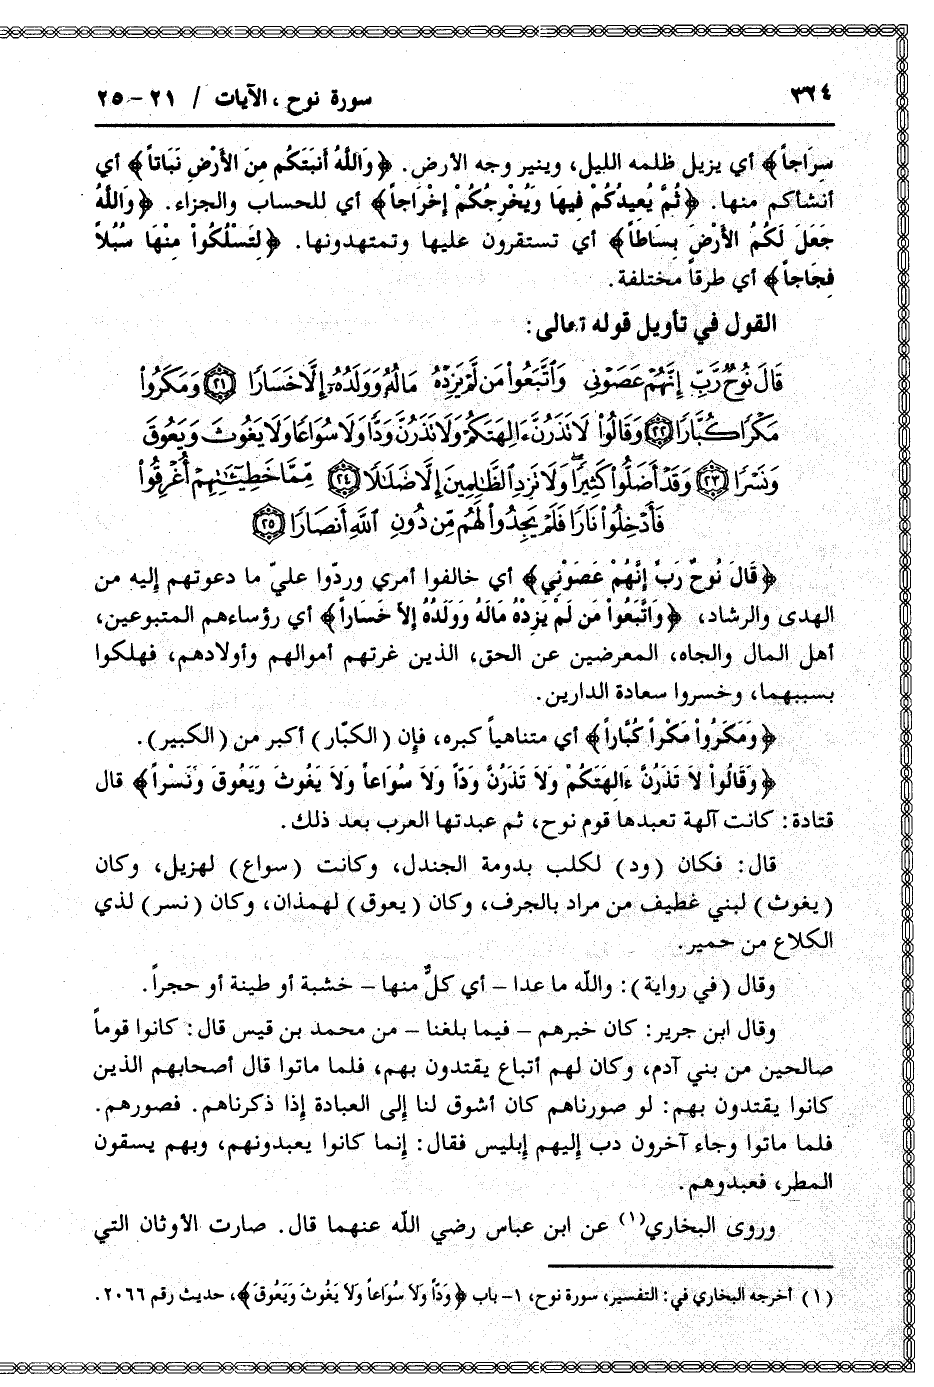 ٣٢٤
سورة نوح ، الآيات / ٢١ - ٢٥
سرَاجاً﴾ أي يزيل ظلمه الليل، وينير وجه الأرض. ﴿وَاللَّهُ أَنبَتَكُم مِنَ الأَرْضِ نَبَاتاً﴾ أي
أنشأكم منها. ﴿ثُمَّ يُعِيدُكُمْ فِيهَا وَيُخْرِجُكُمْ إِخْرَاجاً﴾ أي للحساب والجزاء. ﴿وَاللَّهُ
جَعَلَ لَكُمُ الأَرْضَ بِسَاطَاً﴾ أي تستقرون عليها وتمتهدونها. ﴿لِتَسْلُكُواْ مِنْهَا سُبُلاً
فِجَاجاً﴾ أي طرقاً مختلفة.
القول في تأويل قوله تعالى:
قَالَ نُوحٌ رَّبِّ إِنَّهُمْ عَصَوْنِي وَٱتَّبَعُواْ مَن لَّمْ يَزِدْهُ مَالُهُۥ وَوَلَدُهُۥٓ إِلَّا خَسَارًا ﴿٢١﴾ وَمَكَرُواْ
مَكْرًا كُبَّارًا ﴿٢٢﴾ وَقَالُواْ لَا تَذَرُنَّ ءَالِهَتَكُمْ وَلَا تَذَرُنَّ وَدًّا وَلَا سُوَاعًا وَلَا يَغُوثَ وَيَعُوقَ
وَنَسْرًا ﴿٢٣﴾ وَقَدْ أَضَلُّواْ كَثِيرًا ۖ وَلَا نَزِدِ ٱلظَّٰلِمِينَ إِلَّا ضَلَٰلًا ﴿٢٤﴾ مِّمَّا خَطِيٓـَٰٔتِهِمْ أُغْرِقُواْ
فَأُدْخِلُواْ نَارًا فَلَمْ يَجِدُواْ لَهُم مِّن دُونِ ٱللَّهِ أَنصَارًا ﴿٢٥﴾
﴿قَالَ نُوحٌ رَبِّ إِنَّهُمْ عَصَوْنِي﴾ أي خالفوا أمري وردّوا عليّ ما دعوتهم إليه من
الهدى والرشاد، ﴿وَاتَّبَعُواْ مَن لَمْ يَزِدْهُ مَالُهُ وَوَلَدُهُ إِلاَّ خَسَاراً﴾ أي رؤساءهم المتبوعين،
أهل المال والجاه، المعرضين عن الحق، الذين غرتهم أموالهم وأولادهم، فهلكوا
بسببهما، وخسروا سعادة الدارين.
﴿وَمَكَرُواْ مَكْراً كُبَّاراً﴾ أي متناهياً كبره، فإن (الكبّار) أكبر من (الكبير).
﴿وَقَالُواْ لاَ تَذَرُنَّ ءَالِهَتَكُمْ وَلاَ تَذَرُنَّ وَدّاً وَلاَ سُوَاعاً وَلاَ يَغُوثَ وَيَعُوقَ وَنَسْراً﴾ قال
قتادة: كانت آلهة تعبدها قوم نوح، ثم عبدتها العرب بعد ذلك.
قال: فكان (ود) لكلب بدومة الجندل، وكانت (سواع) لهزيل، وكان
(يغوث) لبني غطيف من مراد بالجرف، وكان (يعوق) لهمذان، وكان (نسر) لذي
الكلاع من حمير.
وقال (في رواية): واللّه ما عدا - أي كلٌّ منها - خشبة أو طينة أو حجراً.
وقال ابن جرير: كان خبرهم - فيما بلغنا - من محمد بن قيس قال: كانوا قوماً
صالحين من بني آدم، وكان لهم أتباع يقتدون بهم، فلما ماتوا قال أصحابهم الذين
كانوا يقتدون بهم: لو صورناهم كان أشوق لنا إلى العبادة إذا ذكرناهم. فصورهم.
فلما ماتوا وجاء آخرون دب إليهم إبليس فقال: إنما كانوا يعبدونهم، وبهم يسقون
المطر، فعبدوهم.
وروى البخاري(١) عن ابن عباس رضي اللّه عنهما قال. صارت الأوثان التي
(١) أخرجه البخاري في: التفسير، سورة نوح، ١- باب ﴿وَدّاً وَلاَ سُوَاعاً وَلاَ يَغُوثَ وَيَعُوقَ﴾، حديث رقم ٢٠٦٦.